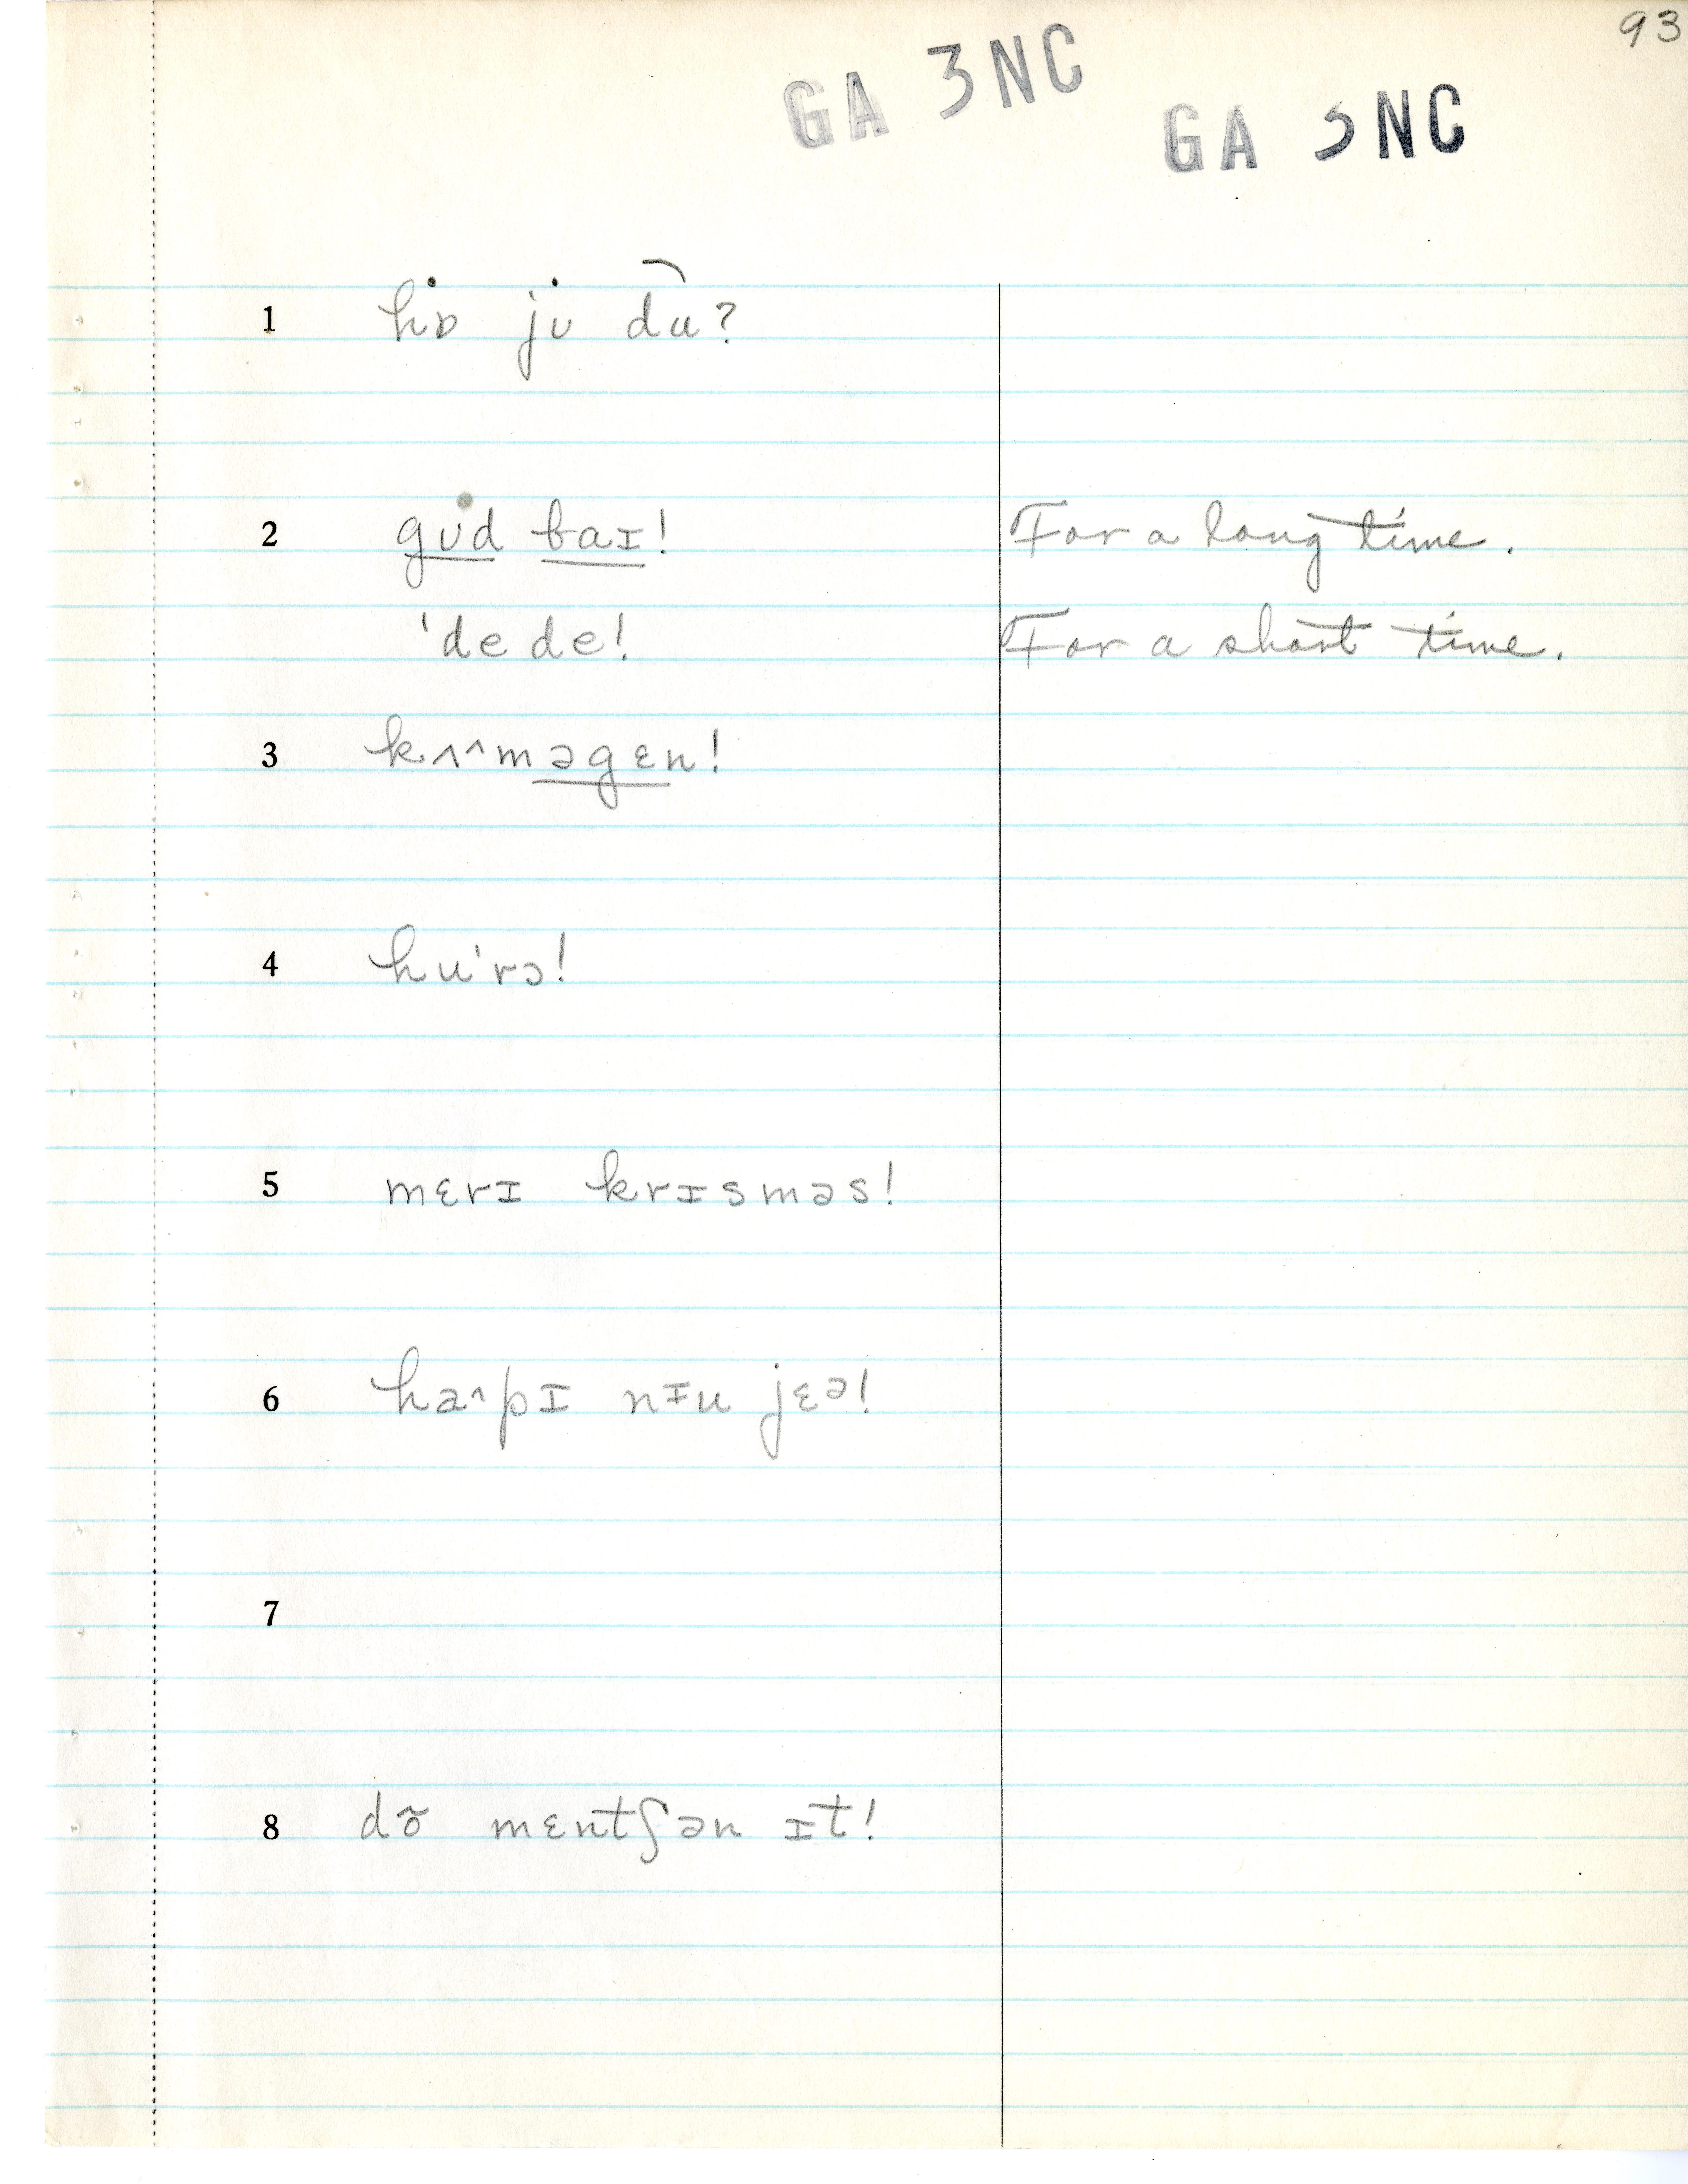 93
GA 3NC
GA 3NC
1 hɒ jʊ du?
2 gʊd baɪ! For a long time.
'de de! For a short time.
3 kʌ^məgɛn!
4 hu'rɔ!
5 mɛrɪ krɪsməs!
6 ha^pɪ nɪu jɛə!
7
8 dõ mɛntʃən ɪt!